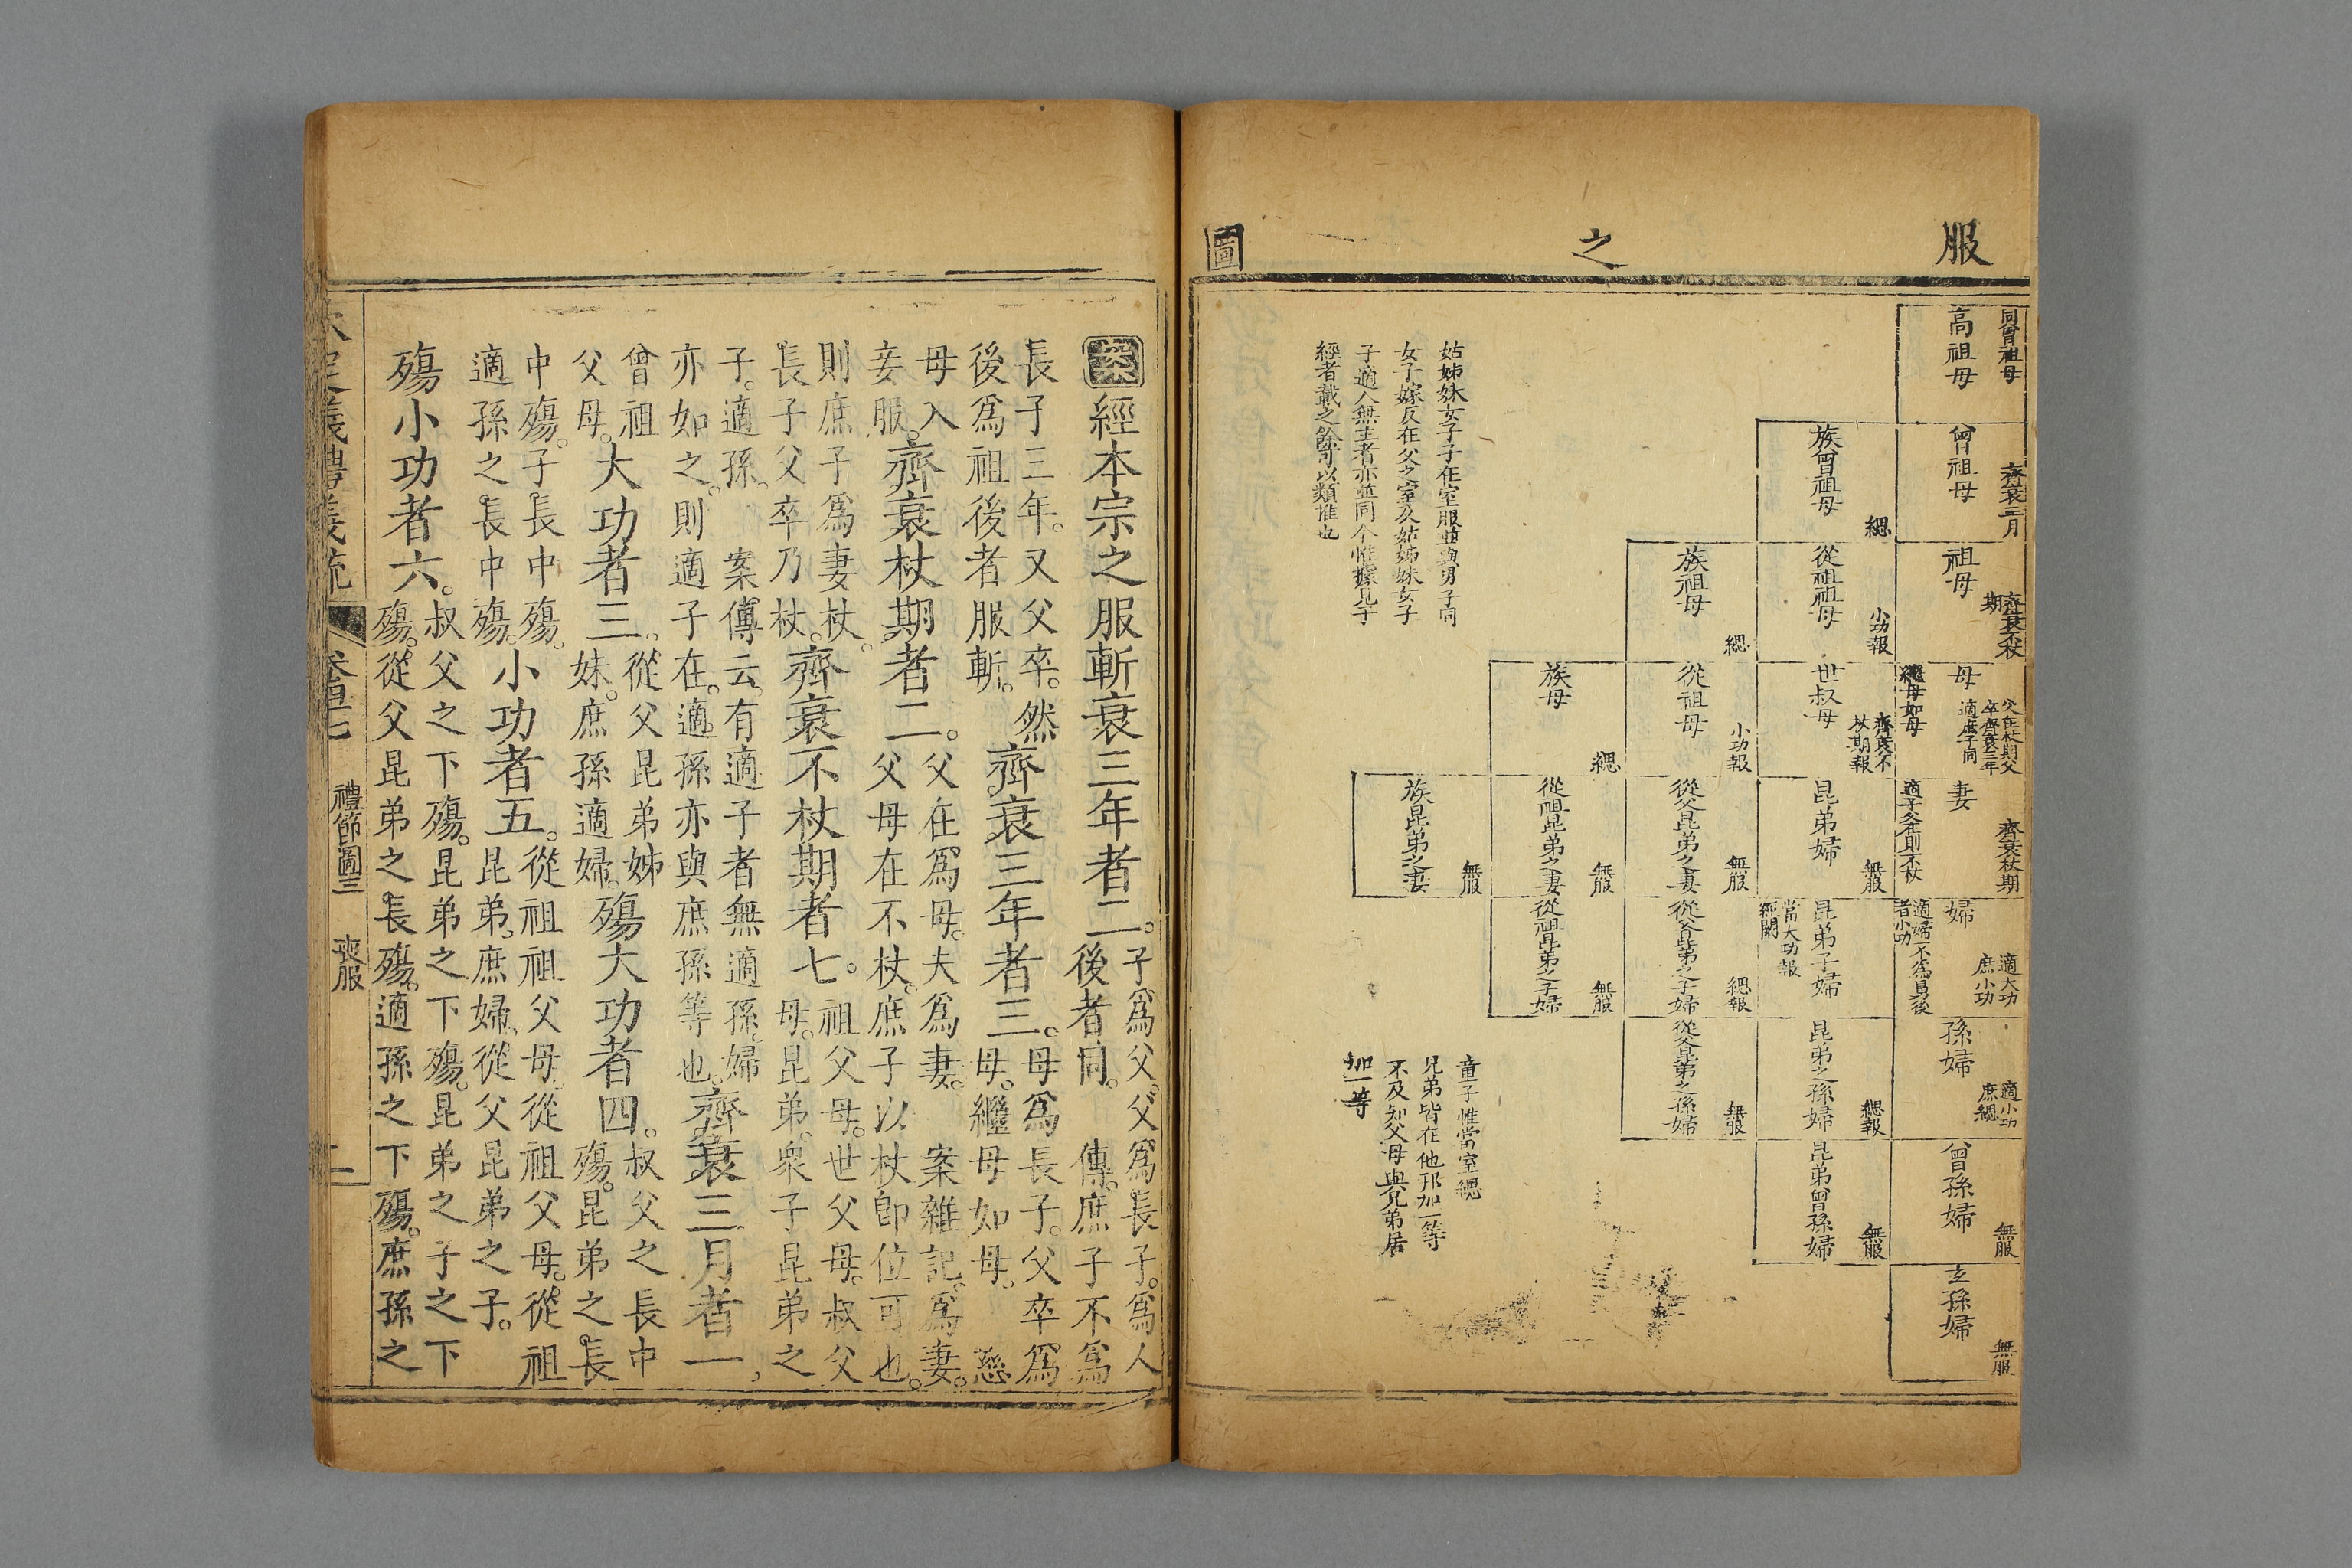 服
之
圖
同曾祖母
高祖母
曾祖母
齊衰三月
祖母
齊衰不杖
期
母
父在杖期父
卒齊衰三年
適庶子同
繼母如母
妻
齊衰杖期
適子父在則不杖
婦
適大功
庶小功
適婦不為舅後
者小功
孫婦
適小功
庶緦
曾孫婦
無服
玄孫婦
無服
族曾祖母
緦
從祖祖母
小功報
世叔母
齊衰不
杖期報
昆弟婦
無服
昆弟子婦
當大功報
經闕
昆弟之孫婦
緦報
昆弟曾孫婦
無服
族祖母
緦
從祖母
小功報
從父昆弟之妻
無服
從父昆弟之子婦
緦報
從父昆弟之孫婦
無服
族母
緦
從祖昆弟之妻
無服
從祖昆弟之子婦
無服
族昆弟之妻
無服
姑姊妹女子子在室服並與男子同
女子嫁反在父之室及姑姊妹女子
子適人無主者亦並同今惟據見于
經者載之餘可以類推也
童子惟當室緦
兄弟皆在他邦加一等
不及知父母與兄弟居
加一等
案經本宗之服斬衰三年者二。子爲父。父爲長子。爲人
後者同。傳。庶子不爲
長子三年。又父卒。然
後爲祖後者服斬。齊衰三年者三。母爲長子。父卒爲
母。繼母如母。慈
母入
妾服。齊衰杖期者二。父在爲母。夫爲妻。案雜記。爲妻。
父母在不杖。庶子以杖卽位可也。
則庶子爲妻杖。
長子父卒乃杖。齊衰不杖期者七。祖父母。世父母。叔父
母。昆弟。衆子昆弟之
子。適孫。案傳云。有適子者無適孫。婦
亦如之。則適子在。適孫亦與庶孫等也。齊衰三月者一、
曾祖
父母。大功者三。從父昆弟姊
妹。庶孫適婦。殤大功者四。叔父之長中
殤。昆弟之長
中殤。子長中殤。
適孫之長中殤。小功者五。從祖祖父母。從祖父母。從祖
昆弟。庶婦。從父昆弟之子。
殤小功者六。叔父之下殤。昆弟之下殤。昆弟之子之下
殤。從父昆弟之長殤。適孫之下殤。庶孫之
禮節圖三
喪服
二